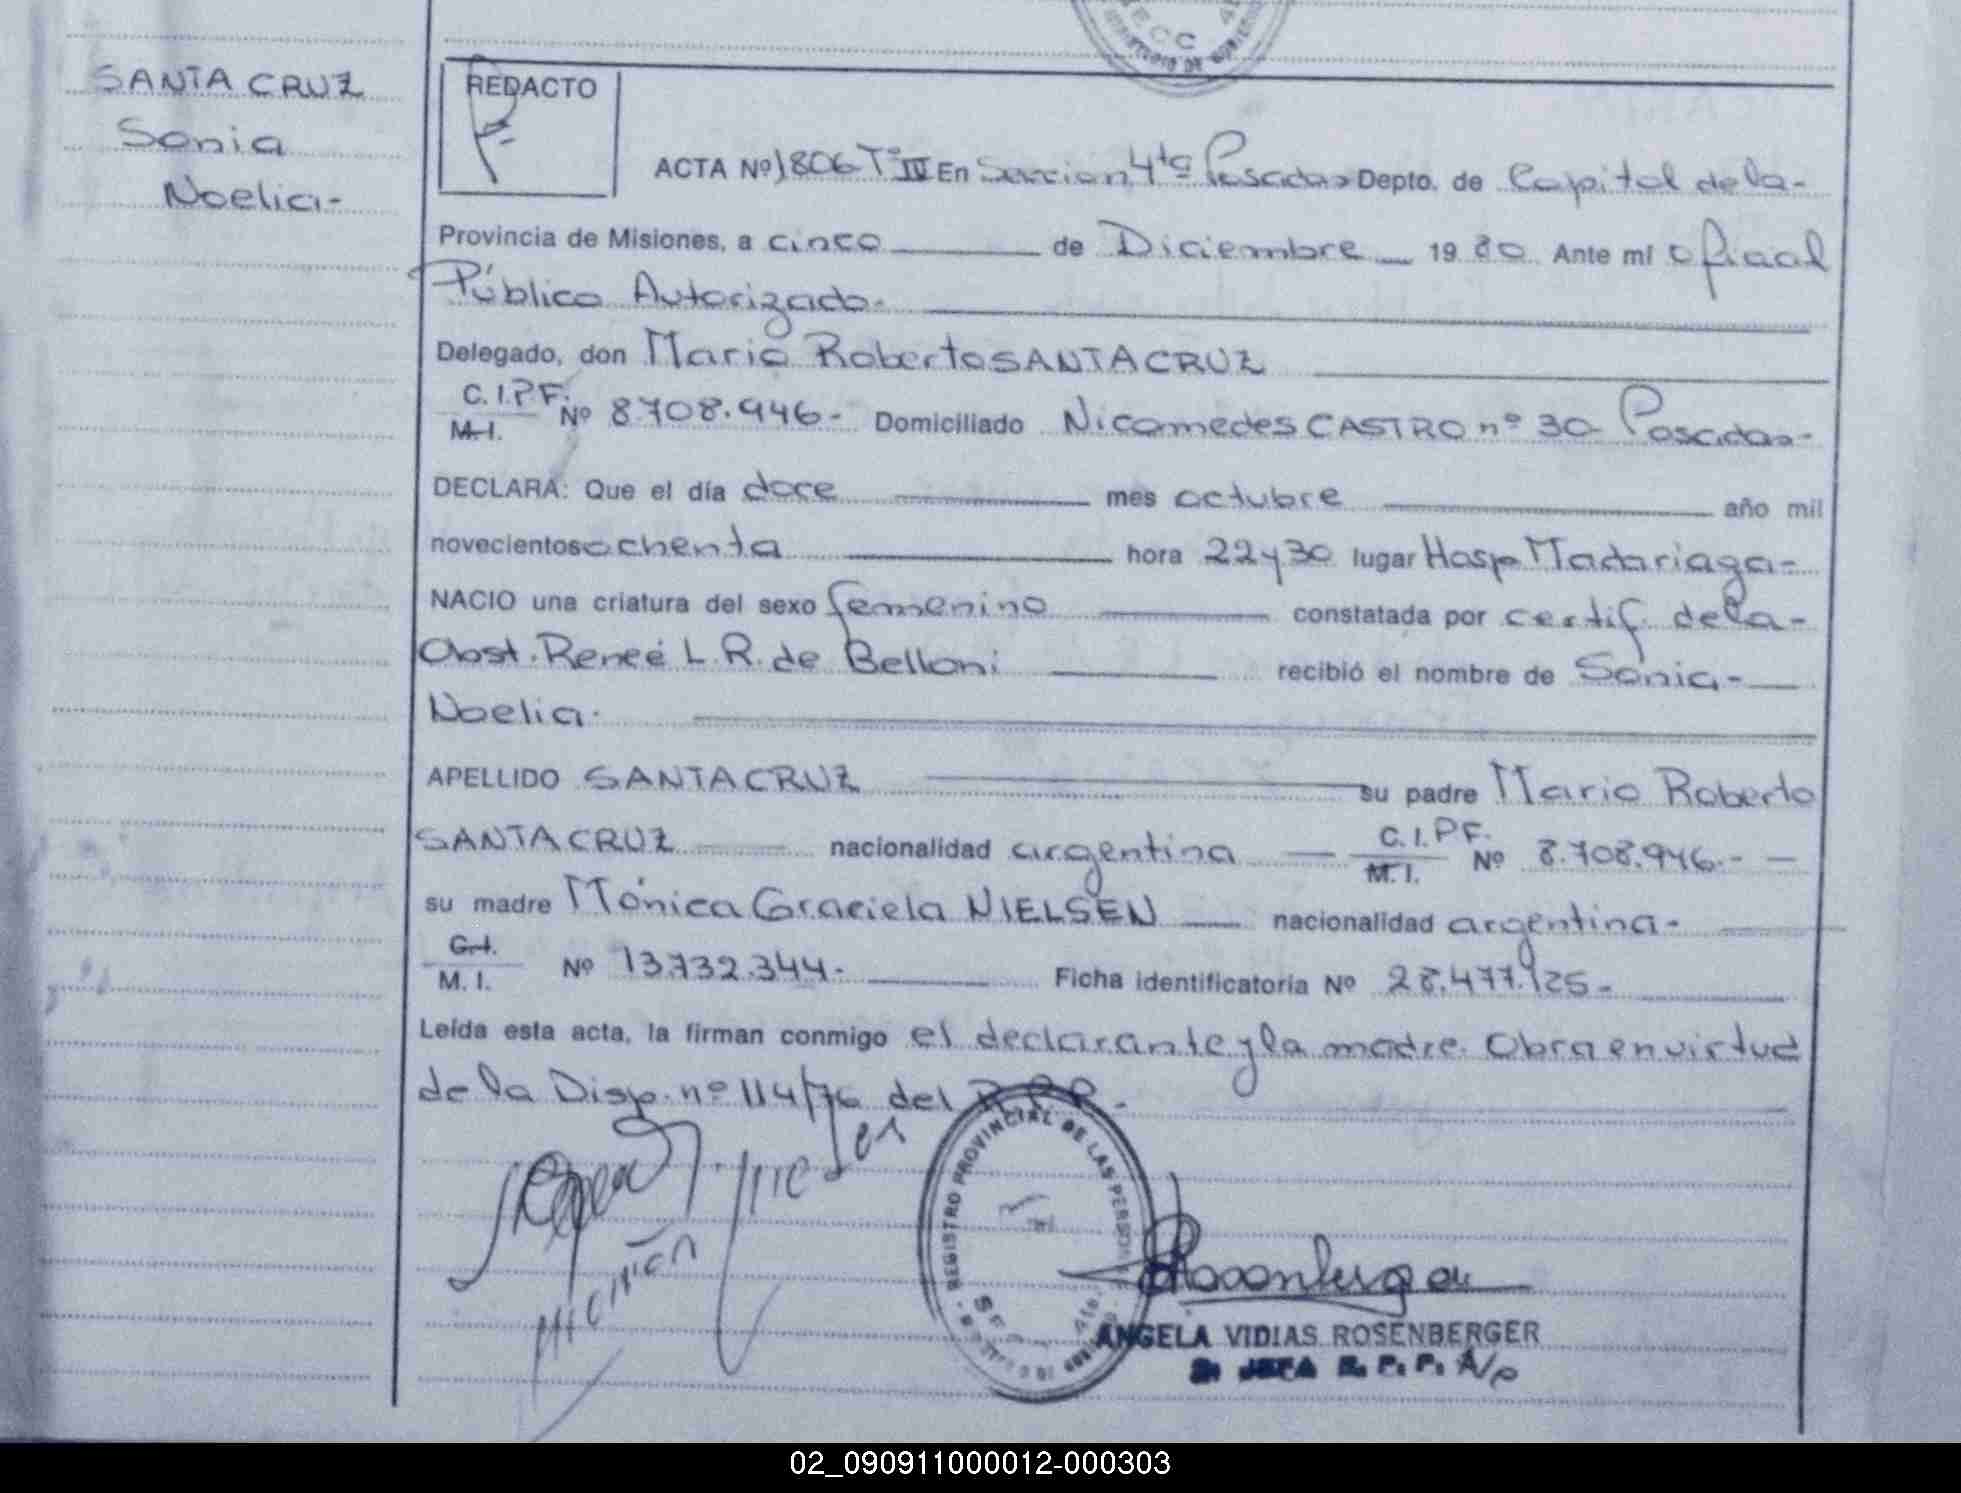 SANTA CRUZ
Sonia
Noelia-
REDACTO
ACTA Nº 1806 Tº IV En Seccion 4ta Posadas Depto. de Capital de la-
Provincia de Misiones, a cinco de Diciembre 1980 Ante mí Oficial
Público Autorizado.
Delegado, don Mario Roberto SANTACRUZ
C.I.PF.
M.I. Nº 8708.946- Domiciliado Nicomedes CASTRO nº 30 Posadas-
DECLARA: Que el día doce mes octubre año mil
novecientos ochenta hora 22 y 30 lugar Hosp Madariaga-
NACIO una criatura del sexo femenino constatada por certif. de la-
Obst. Reneé L. R. de Belloni recibió el nombre de Sonia-
Noelia.
APELLIDO SANTACRUZ su padre Mario Roberto
SANTACRUZ nacionalidad argentina C.I.PF.
M.I. Nº 8.708.946.-
su madre Mónica Graciela NIELSEN nacionalidad argentina-
C.I.
M.I. Nº 13.732.344- Ficha identificatoria Nº 28.477.125-
Leída esta acta, la firman conmigo el declarante y la madre. Obra en virtud
de la Disp. nº 114/76 del R.P.P.-
REGISTRO PROVINCIAL DE LAS PERSONAS
ANGELA VIDIAS ROSENBERGER
JEFA R. P. P. A/c
02_090911000012-000303